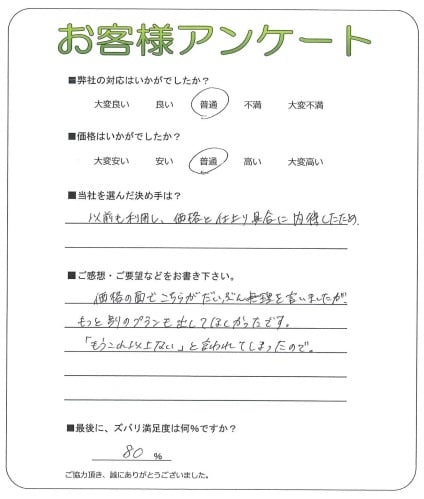 お客様アンケート
■弊社の対応はいかがでしたか？
大変良い 良い 普通 不満 大変不満
■価格はいかがでしたか？
大変安い 安い 普通 高い 大変高い
■当社を選んだ決め手は？
以前も利用し、価格と仕上り具合に納得したため。
■ご感想・ご要望などをお書き下さい。
価格の面でこちらがだいぶん無理を言いましたが、
もっと別のプランも出してほしかったです。
「もうこれ以上ない」と言われてしまったので。
■最後に、ズバリ満足度は何%ですか？
80 %
ご協力頂き、誠にありがとうございました。